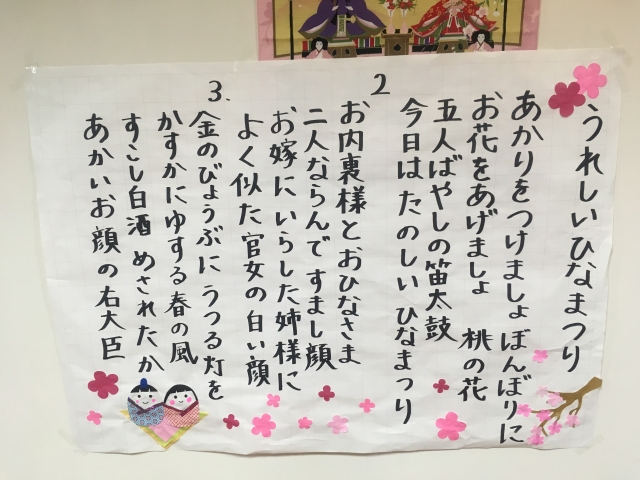 うれしいひなまつり
あかりをつけましょ ぼんぼりに
お花をあげましょ 桃の花
五人ばやしの笛太鼓
今日は たのしい ひなまつり
2
お内裏様と おひなさま
二人ならんで すまし顔
お嫁に いらした 姉様に
よく似た 官女の 白い顔
3.
金のびょうぶに うつる 灯を
かすかにゆする 春の風
すこし白酒 めされたか
あかいお顔の 右大臣